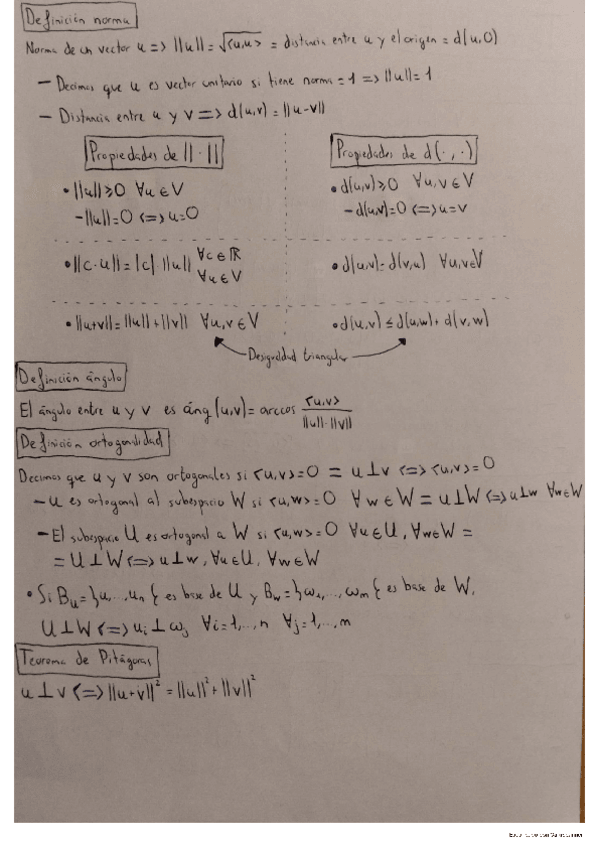 Definición norma
Norma de un vector u => ||u|| = √<u,u> = distancia entre u y el origen = d(u,0)
- Decimos que u es vector unitario si tiene norma = 1 => ||u|| = 1
- Distancia entre u y v => d(u,v) = ||u-v||
Propiedades de ||·||
Propiedades de d(·,·)
• ||u|| ≥ 0 ∀u∈V
• d(u,v) ≥ 0 ∀u,v∈V
- ||u|| = 0 <=> u = 0
- d(u,v) = 0 <=> u = v
• ||c·u|| = |c|·||u|| ∀c∈ℝ ∀u∈V
• d(u,v) = d(v,u) ∀u,v∈V
• ||u+v|| = ||u|| + ||v|| ∀u,v∈V
• d(u,v) ≤ d(u,w) + d(v,w)
Desigualdad triangular
Definición ángulo
El ángulo entre u y v es áng(u,v) = arccos <u,v> / ||u||·||v||
Definición ortogonalidad
Decimos que u y v son ortogonales si <u,v> = 0 = u⊥v <=> <u,v> = 0
- u es ortogonal al subespacio W si <u,w> = 0 ∀w∈W = u⊥W <=> u⊥w ∀w∈W
- El subespacio U es ortogonal a W si <u,w> = 0 ∀u∈U, ∀w∈W =
= U⊥W <=> u⊥w, ∀u∈U, ∀w∈W
• Si Bu = }u,...,un{ es base de U y Bw = }ω1,...,ωm{ es base de W,
U⊥W <=> ui⊥ωj ∀i=1,...,n ∀j=1,...,m
Teorema de Pitágoras
u⊥v <=> ||u+v||² = ||u||² + ||v||²